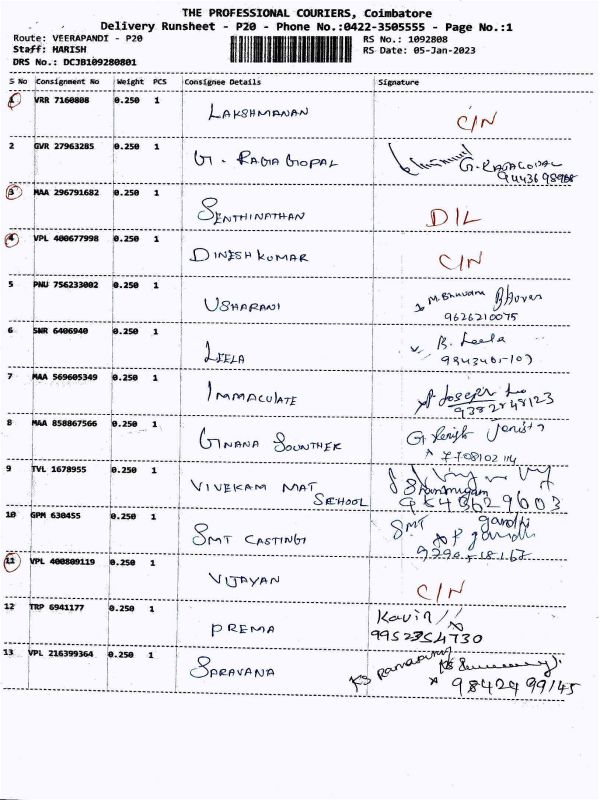 THE PROFESSIONAL COURIERS, Coimbatore
Delivery Runsheet - P20 - Phone No.:0422-3505555 - Page No.:1
Route: VEERAPANDI - P20 RS No.: 1092808
Staff: HARISH RS Date: 05-Jan-2023
DRS No.: DCJB109280801
S No Consignment No Weight PCS Consignee Details Signature
1 VRR 7160808 0.250 1 LAKSHMANAN C/N
2 GVR 27963285 0.250 1 G. RAJA GOPAL G. RAJAGOPAL
3 MAA 296791682 0.250 1 SENTHINATHAN D/L
4 VPL 400677998 0.250 1 DINESH KUMAR C/N
5 PNU 756233002 0.250 1 USHARANI
9626210075
6 SNR 6406940 0.250 1 LEELA B. Leela
7 MAA 569605349 0.250 1 IMMACULATE Joseph
9382848123
8 MAA 858867566 0.250 1 GNANA SOUNTHER
9 TVL 1678955 0.250 1 VIVEKAM MAT
SCHOOL Shanmugam
10 GPM 630455 0.250 1 SMT CASTING SMT gandhi
gandhi
11 VPL 400809119 0.250 1 VIJAYAN C/N
12 TRP 6941177 0.250 1 PREMA Kavin
9952354730
13 VPL 216399364 0.250 1 SARAVANA KS
9842499145